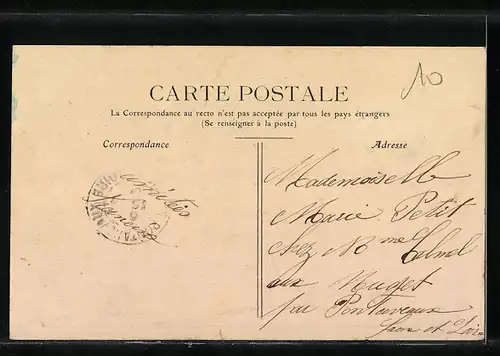 10
CARTE POSTALE
La Correspondance au recto n'est pas acceptée par tous les pays étrangers
(Se renseigner à la poste)
Correspondance
Adresse
amitiés
Mademoiselle
Marie Petit
chez Mme
aux
par Pontanevaux
Saone et Loire